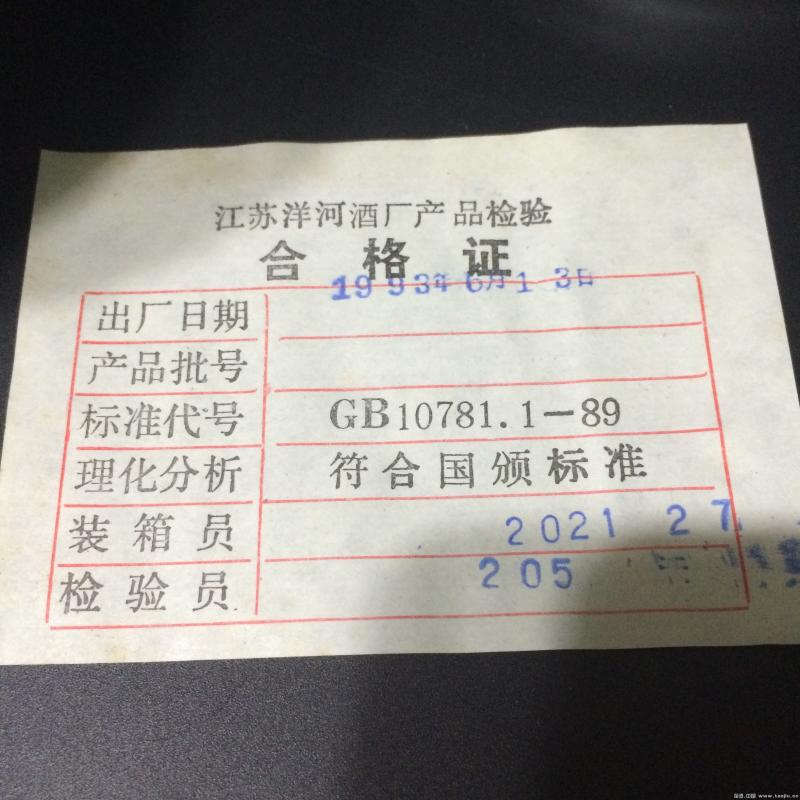 江苏洋河酒厂产品检验
合格证
1993年6月13日
出厂日期
产品批号
标准代号 GB10781.1-89
理化分析 符合国颁标准
装箱员 2021 27
检验员 205